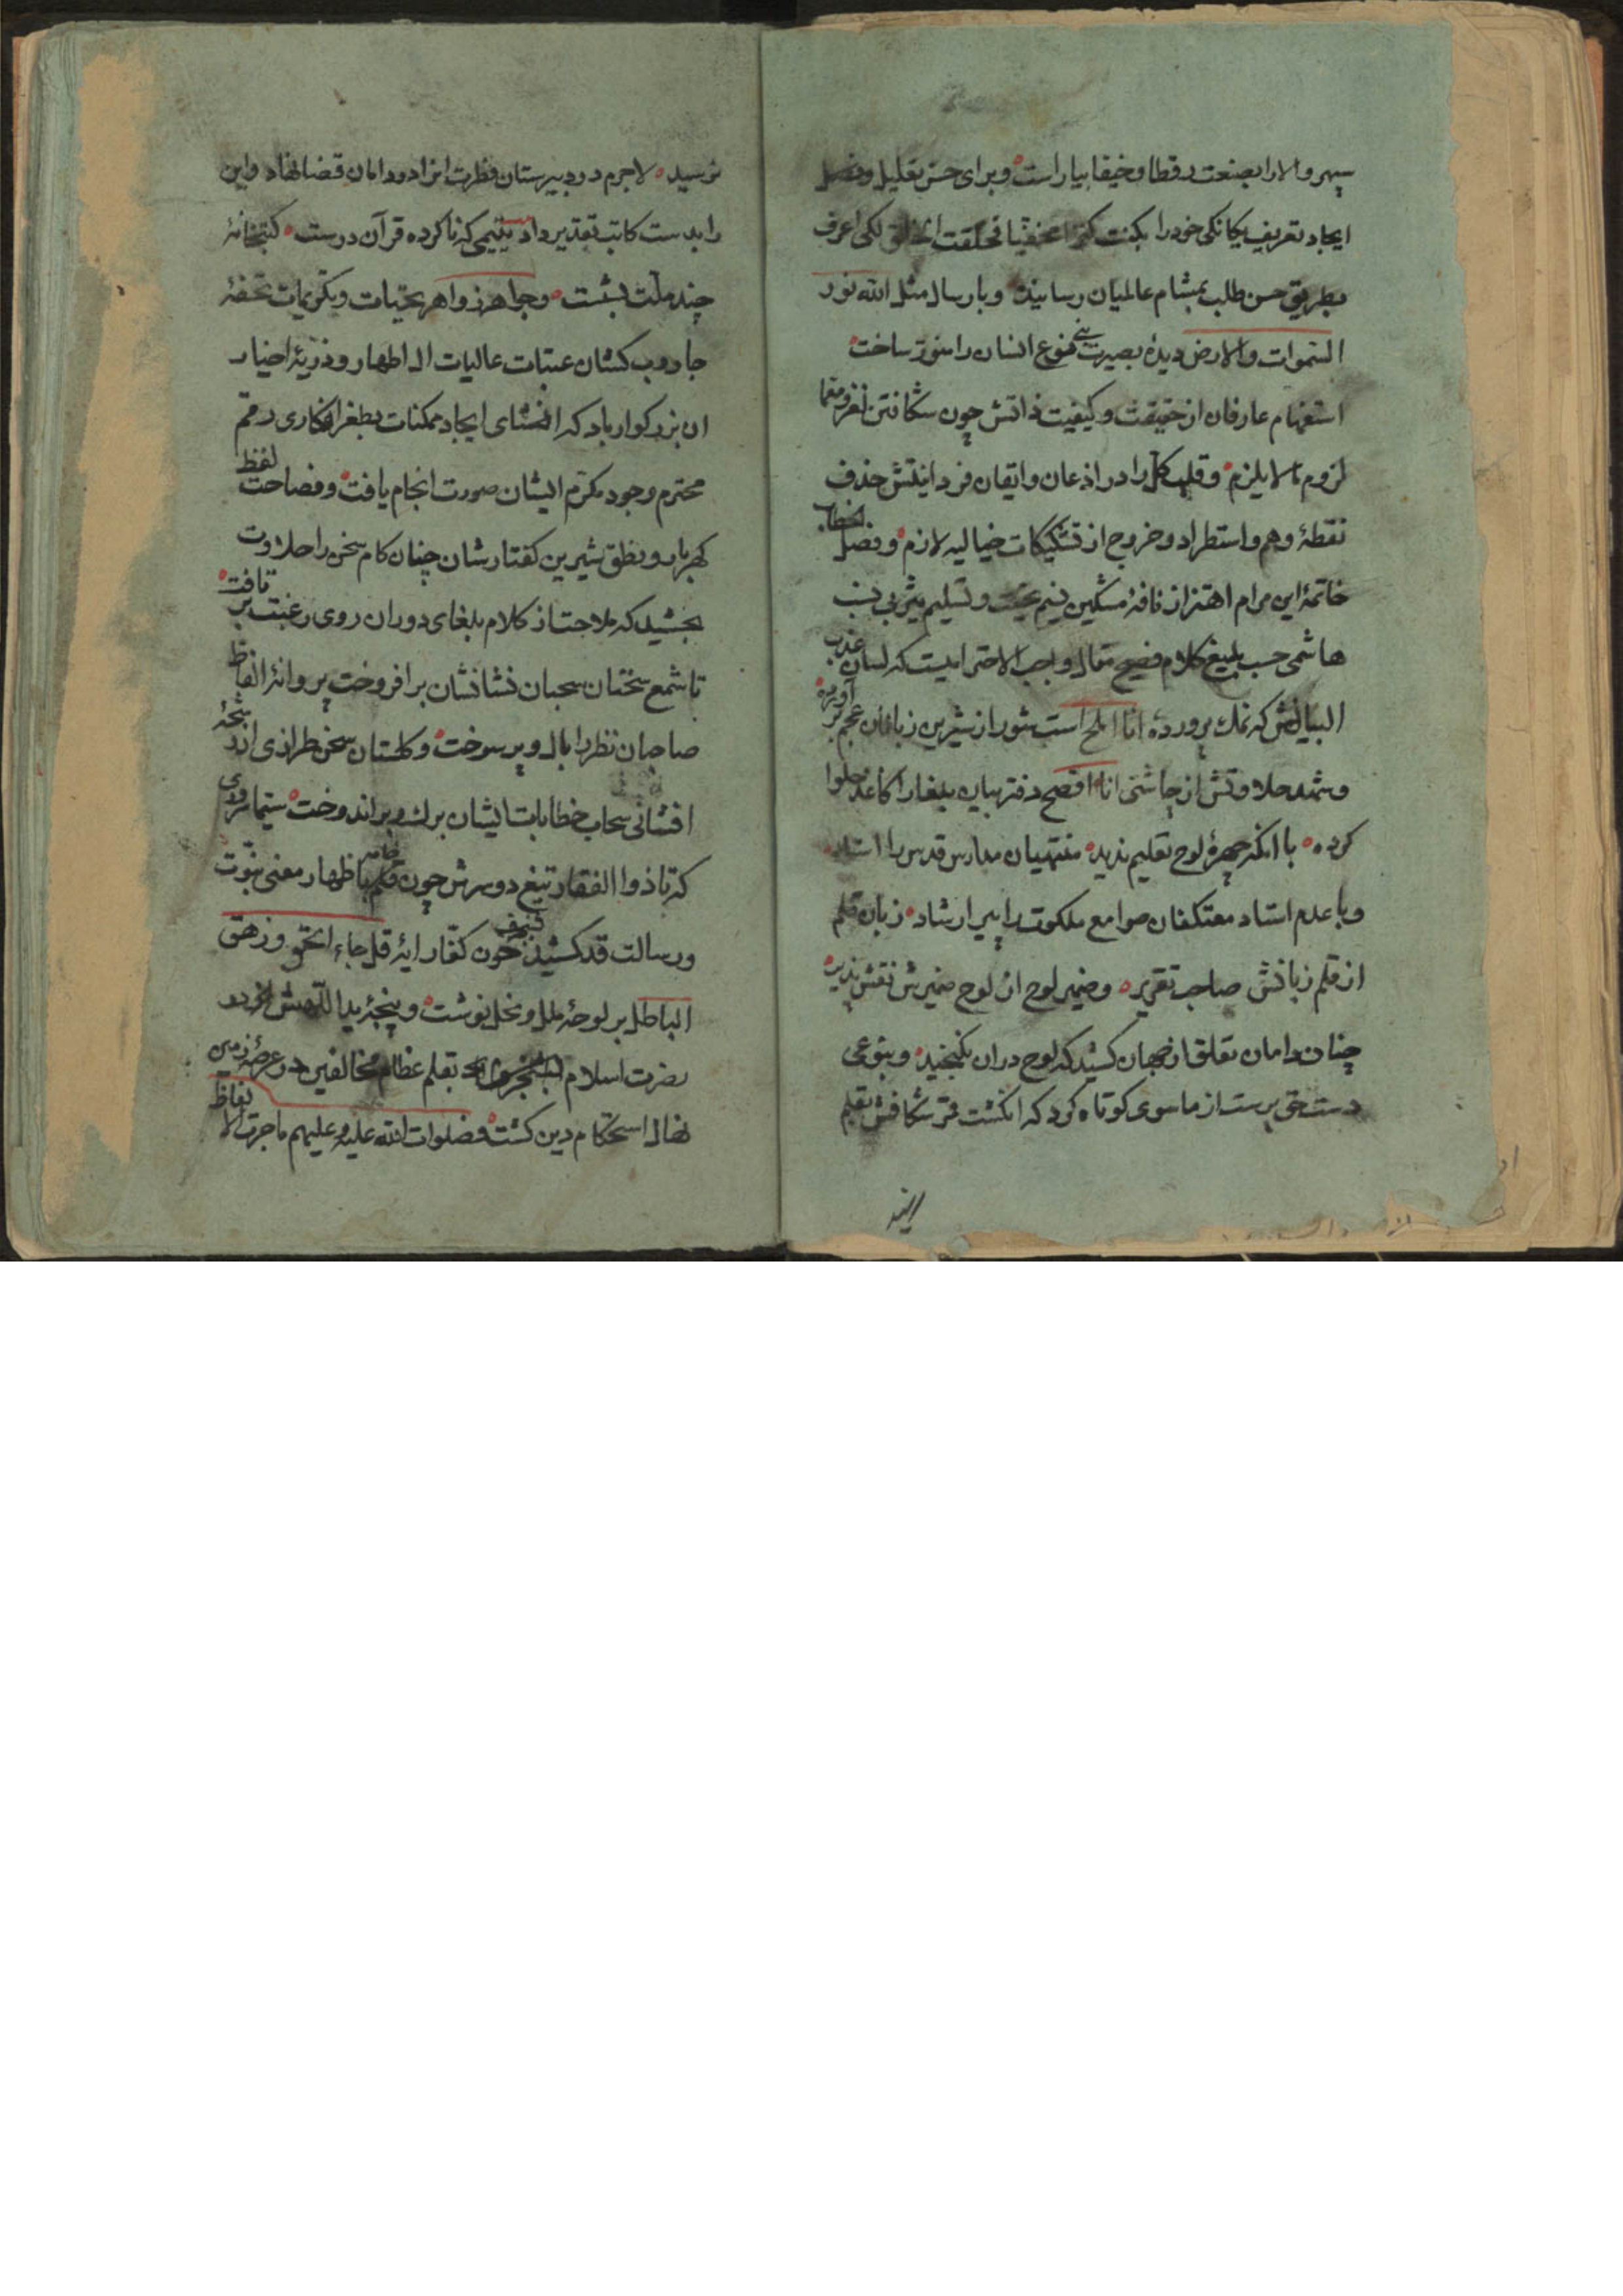 سپهر والا را بصنعت رقطا و خیفا بیاراست و برای حسن تعلیل وفصل
ایجاد تعریف یکانکی خود را بکنت کنزا مخفیا فخلقت الخلق لکی اعرف
بطریق حسن طلب بمشام عالمیان رسانید و بارسال مثل الله نور
السموات والارض دیدهٔ بصیرت بنی نوع انسان را منور ساخت
استفهام عارفان از حقیقت و کیفیت ذاتش چون شکافتن لغز و معما
لزوم مالایلزم و قلب کل را در اذعان و ایقان فردانیتش حذف
نقطهٔ وهم و استطراد و خروج از تشکیکات خیالیه لازم و فصل الخطاب
خاتمهٔ این مرام اهتزاز نافهٔ مشکین نسیم تحیت و تسلیم یثربی نسب
هاشمی حسب بلیغ کلام فصیح مقال واجب الاحترامیست که لسان عذب
البیانش که نمک پروردهٔ انا املح است شور از شیرین زبانان عجم بر آورده
و شهد حلاوتش از چاشنی انا افصح دفتر بیان بلغا را کاغذ حلوا
کرده با انکه چهرهٔ لوح تعلیم ندید منتهیان مدارس قدس را استاد
و با عدم استاد معتکفان صوامع ملکوت را پیر ارشاد زبان قلم
از قلم زبانش صاحب تقریر و ضمیر لوح از لوح ضمیرش نقش پذیر
چنان دامان تعلق از جهان کشید که لوح دران نکنجید و بنوعی
دست حق پرست از ماسوی کوتاه کرد که انکشت قمر شکافش بقلم
نرسید لاجرم درد بیرستان فطرت انرا در دامان قضا نهاد و این
را بدست کاتب تقدیر داد یتیمی که ناکرده قرآن درست کتبخانهٔ
چند ملت بشست و جواهر زواهر تحیات و تکریمات تحفهٔ
جاروب کشان عتبات عالیات ال اطهار و ذریهٔ اخیار
ان بزرکوار باد که انشای ایجاد ممکنات بطغرانکاری رقم
محترم وجود مکرم ایشان صورت انجام یافت و فصاحت لفظ
کهربار و نطق شیرین کفتارشان چنان کام سخن را حلاوت
بخشید که ملاحت از کلام بلغای دوران روی رغبت بر تافت
تا شمع سخنان سحبان نشانشان برافروخت پروانهٔ الفاظ
صاحبان نظر را بال و پر سوخت و کلستان سخن طرازی از رشحهٔ
افشانی سحاب خطابات ایشان برک و بر اندوخت سیما سروری
که تا ذوا الفقار تیغ دو سرش چون قلم باظهار معنی نبوت
ورسالت قد کشید خون کفار ایهٔ قل جاء الحق و زهق
الباطل بر لوحهٔ ملل و نحل نوشت و پنجهٔ یداللهیش
نصرت اسلام بقلم عظام مخالفین در عرصهٔ زمین
نهال استحکام دین کشت فصلوات الله علیه وعلیهم ماجرت الالفاظ